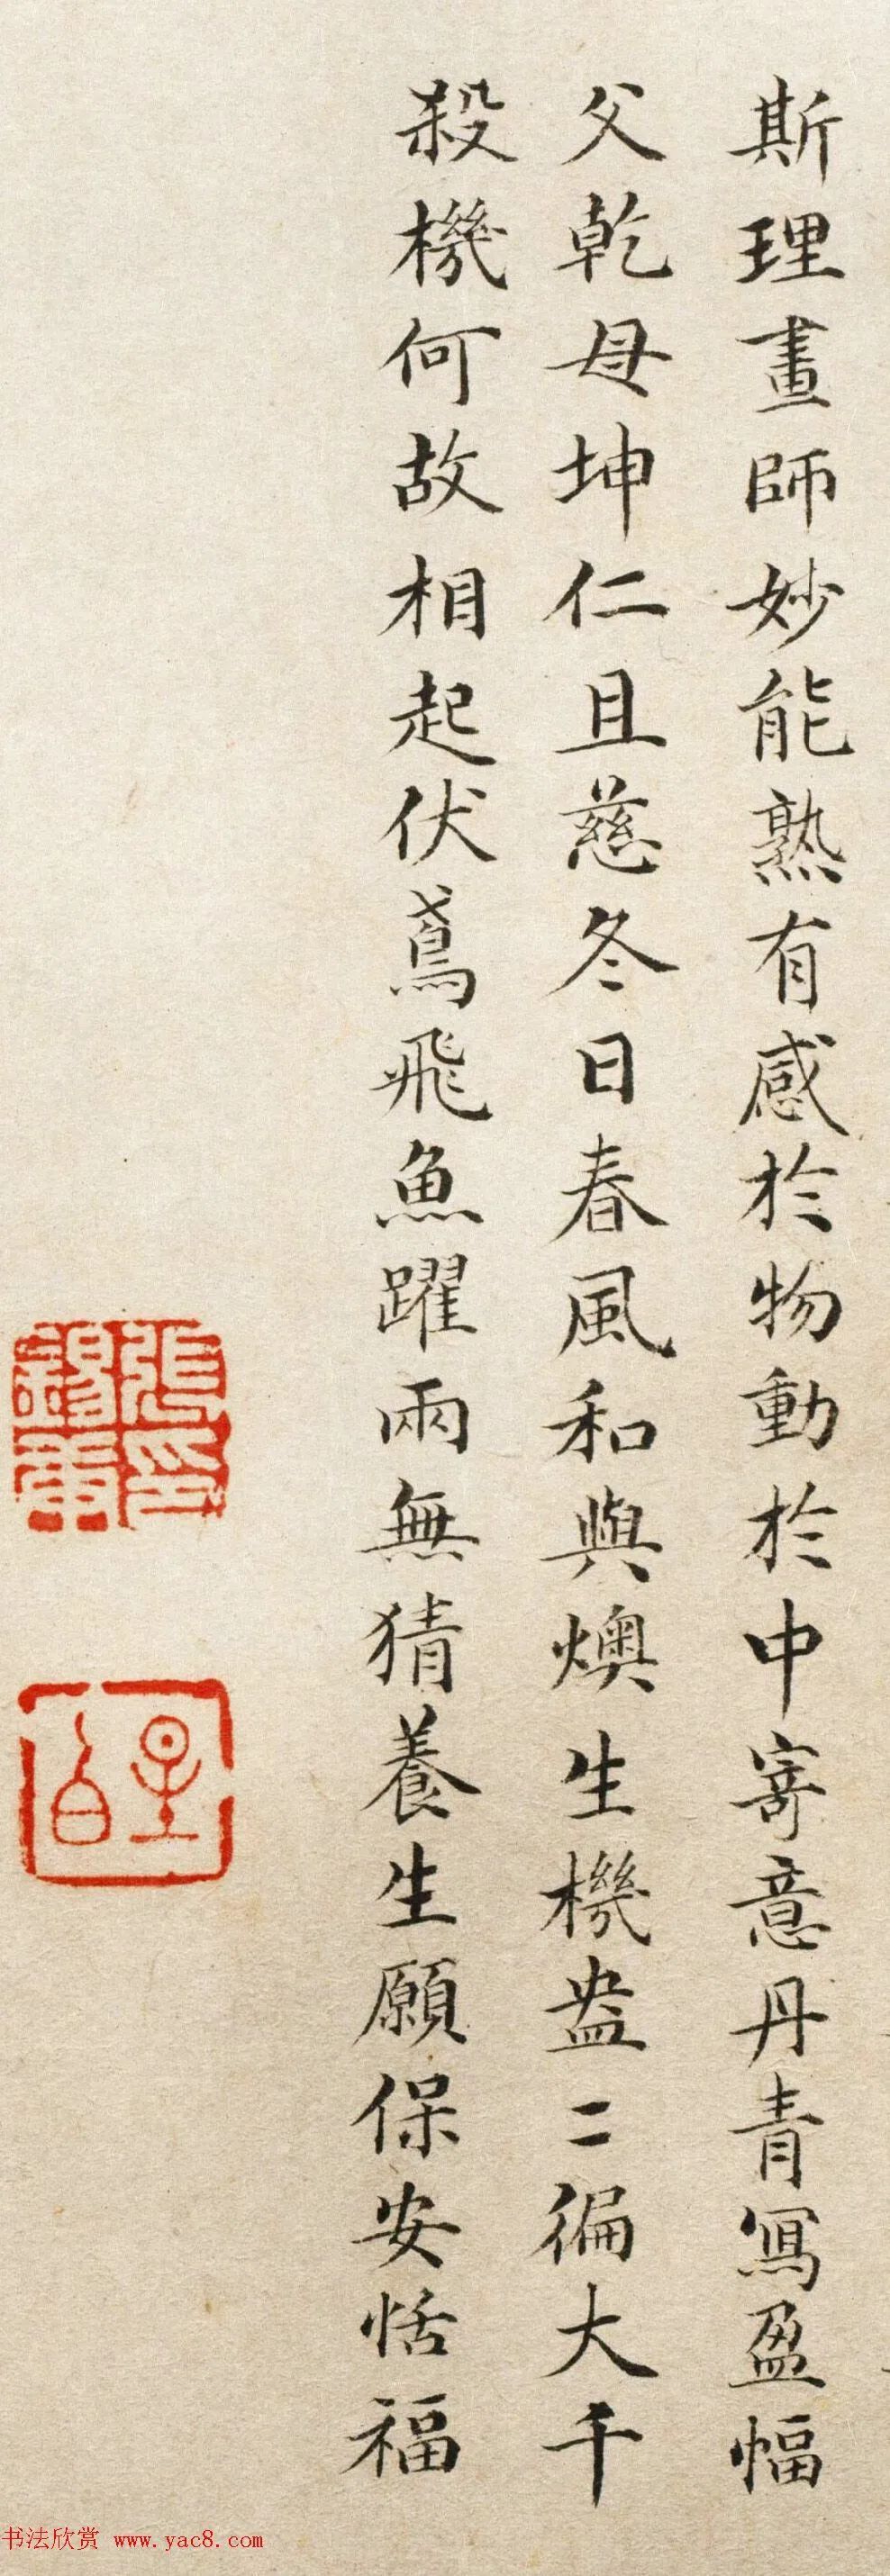 斯理畫師妙能熟有感於物動於中寄意丹青寫盈幅
父乾母坤仁且慈冬日春風和與燠生機盎二徧大千
殺機何故相起伏鳶飛魚躍兩無猜養生願保安恬福
书法欣赏 www.yac8.com